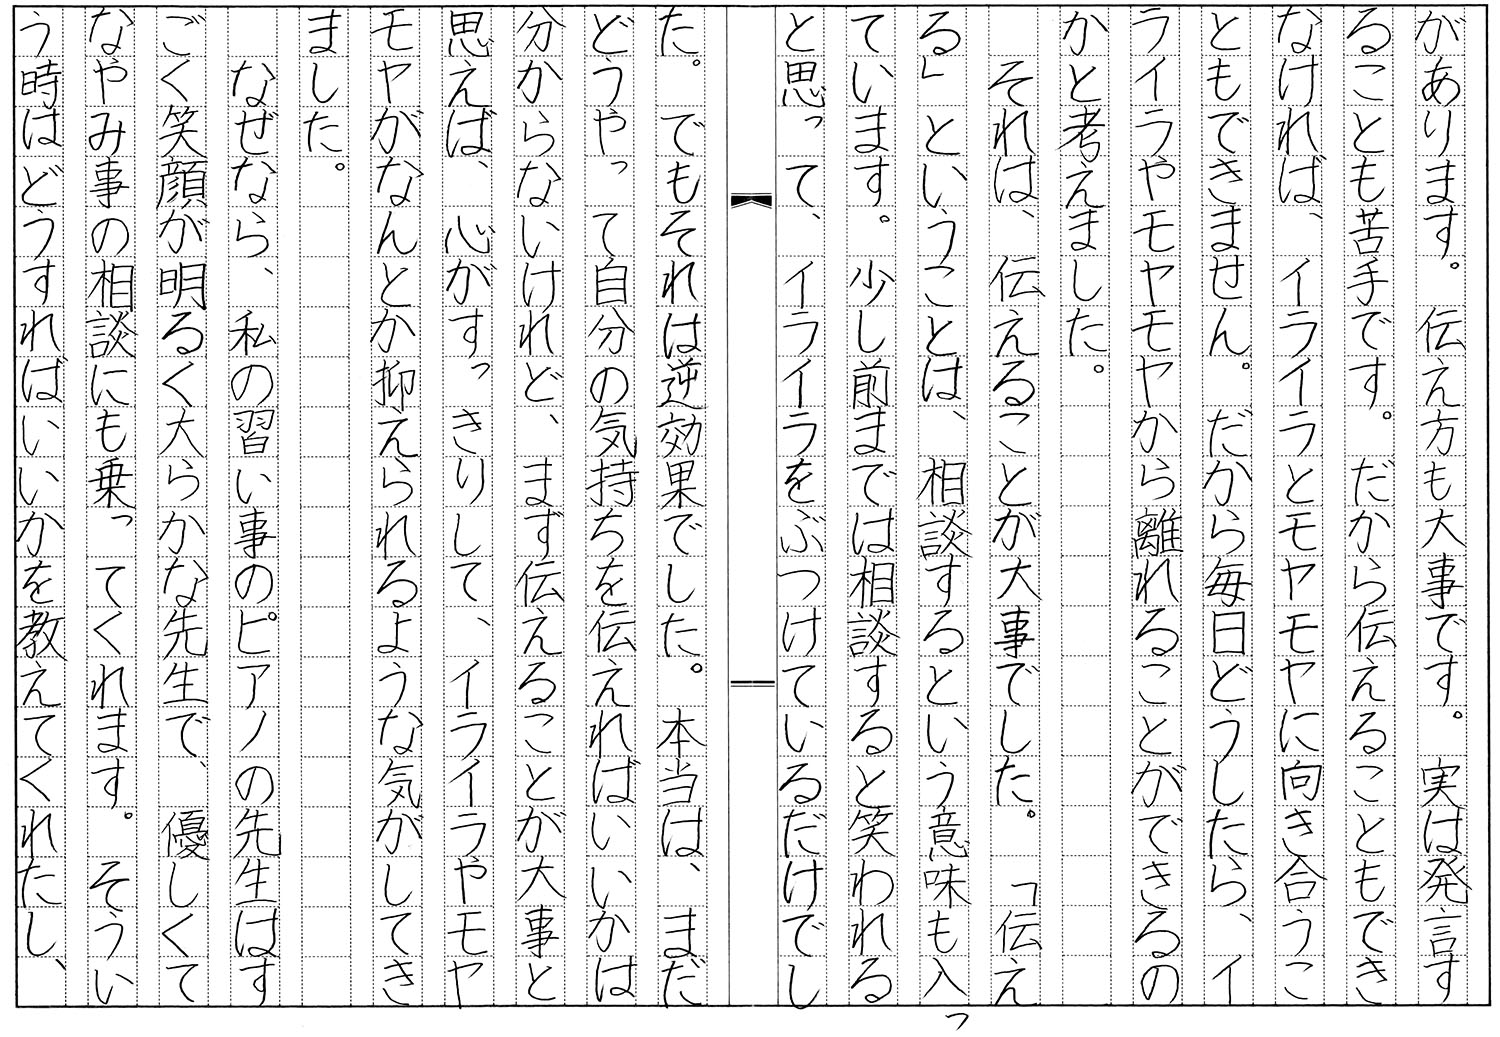 があります。伝え方も大事です。実は発言す
ることも苦手です。だから伝えることもでき
なければ、イライラとモヤモヤに向き合うこ
ともできません。だから毎日どうしたら、イ
ライラやモヤモヤから離れることができるの
かと考えました。
それは、伝えることが大事でした。「伝え
る」ということは、相談するという意味も入っ
ています。少し前までは相談すると笑われる
と思って、イライラをぶつけているだけでし
た。でもそれは逆効果でした。本当は、まだ
どうやって自分の気持ちを伝えればいいかは
分からないけれど、まず伝えることが大事と
思えば、心がすっきりして、イライラやモヤ
モヤがなんとか抑えられるような気がしてき
ました。
なぜなら、私の習い事のピアノの先生はす
ごく笑顔が明るく大らかな先生で、優しくて
なやみ事の相談にも乗ってくれます。そうい
う時はどうすればいいかを教えてくれたし、